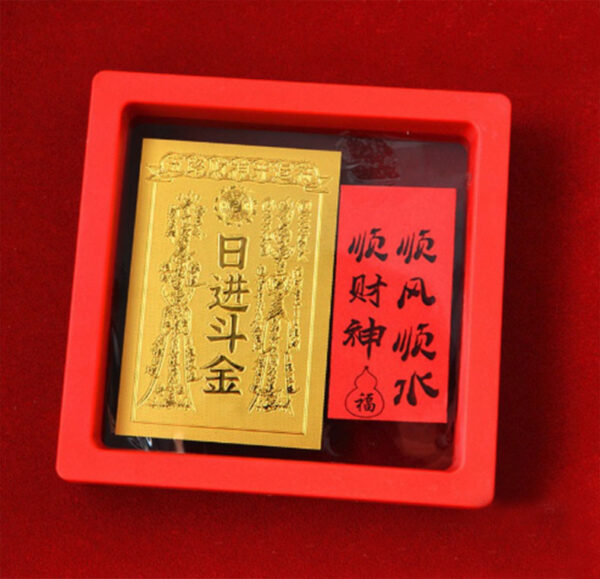 日进斗金
顺风顺水
顺财神
福